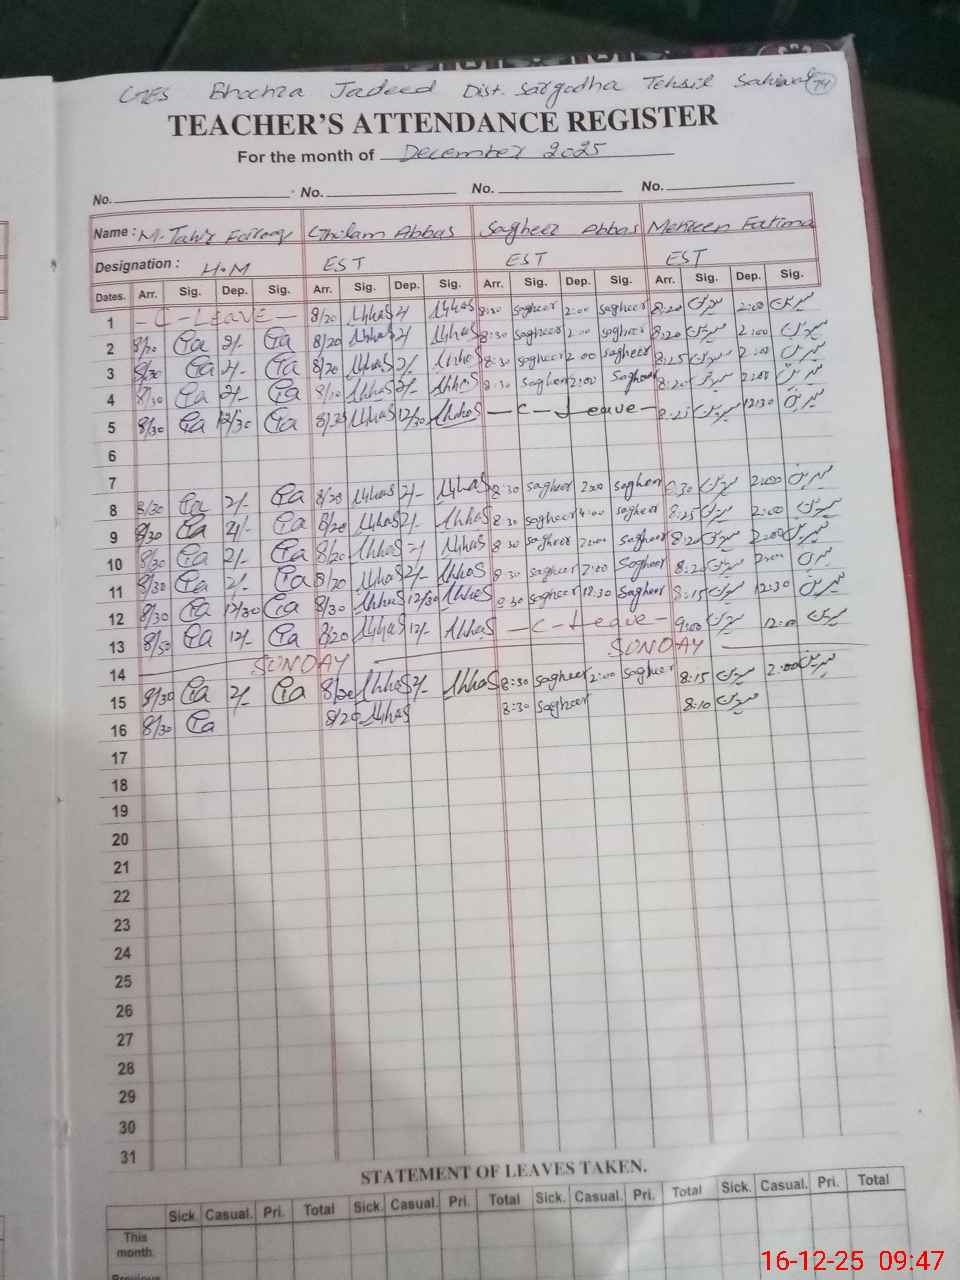 GES Bhochra Jadeed Dist. Sargodha Tehsil Sahiwal 74
TEACHER'S ATTENDANCE REGISTER
For the month of December 2025
No. No. No. No.
Name : M. Tahir Farooq Ghulam Abbas Sagheer Abbas Mehreen Fatima
Designation : H.M EST EST EST
Dates. Arr. Sig. Dep. Sig. Arr. Sig. Dep. Sig. Arr. Sig. Dep. Sig. Arr. Sig. Dep. Sig.
1 - C - LEAVE - 8/20 Abbas 2/- Abbas 8:30 sagheer 2:00 sagheer 8:20 2:00
2 8/30 2/- 8/20 Abbas 2/- Abbas 8:30 sagheer 2:00 sagheer 8:20 2:00
3 8/30 2/- 8/20 Abbas 2/- Abbas 8:30 sagheer 2:00 sagheer 8:25 2:00
4 8/30 2/- Abbas 2/- Abbas 8:30 sagheer 2:00 sagheer 8:20 2:00
5 8/30 12/30 8/25 Abbas 12/30 Abbas - C - Leave - 8:25 12:30
6
7
8 8/30 2/- 8/20 Abbas 2/- Abbas 8:30 sagheer 2:00 sagheer 8:30 2:00
9 8/30 2/- 8/20 Abbas 2/- Abbas 8:30 sagheer sagheer 8:25 2:00
10 8/30 2/- 8/20 Abbas 2/- Abbas 8:30 sagheer 2:00 sagheer 8:20 2:00
11 8/30 2/- 8/20 Abbas 2/- Abbas 8:30 sagheer 2:00 sagheer 8:20 2:00
12 8/30 12/30 8/30 Abbas 12/30 Abbas 8:30 sagheer 12:30 sagheer 8:15 12:30
13 8/30 12/- 8/20 Abbas 12/- Abbas - C - Leave - 9:00 12:00
14 SUNDAY SUNDAY
15 8/30 2/- 8/20 Abbas 2/- Abbas 8:30 sagheer 2:00 sagheer 8:15 2:00
16 8/30 8/20 Abbas 8:30 sagheer 8:10
17
18
19
20
21
22
23
24
25
26
27
28
29
30
31
STATEMENT OF LEAVES TAKEN.
Sick. Casual. Pri. Total Sick. Casual. Pri. Total Sick. Casual. Pri. Total Sick. Casual. Pri. Total
This
month.
Previous
16-12-25 09:47